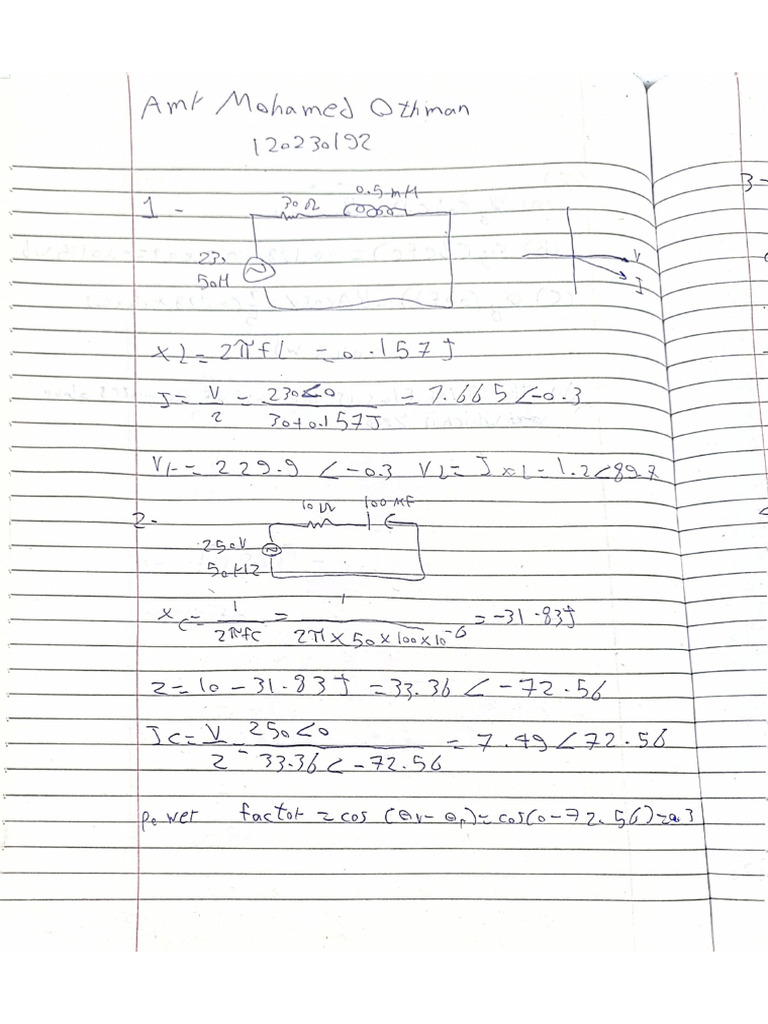 Amr Mohamed Othman
120230192
1 -
30Ω 0.5mH
230
50H
V
I
3-
XL = 2πfL = 0.157J
I = V/2 = 230∠0 / 30+0.157J = 7.665∠-0.3
Vr = 229.9 ∠-0.3 VL = I XL = 1.2∠89.7
2-
10Ω 100MF
250V
50HZ
Xc = 1/2πfC = 1/2π×50×100×10^-6 = -31.83J
Z = 10 - 31.83J = 33.36 ∠-72.56
Ic = V/2 = 250∠0 / 33.36∠-72.56 = 7.49∠72.56
power factor = cos (θv - θI) = cos(0-72.56) = 0.3